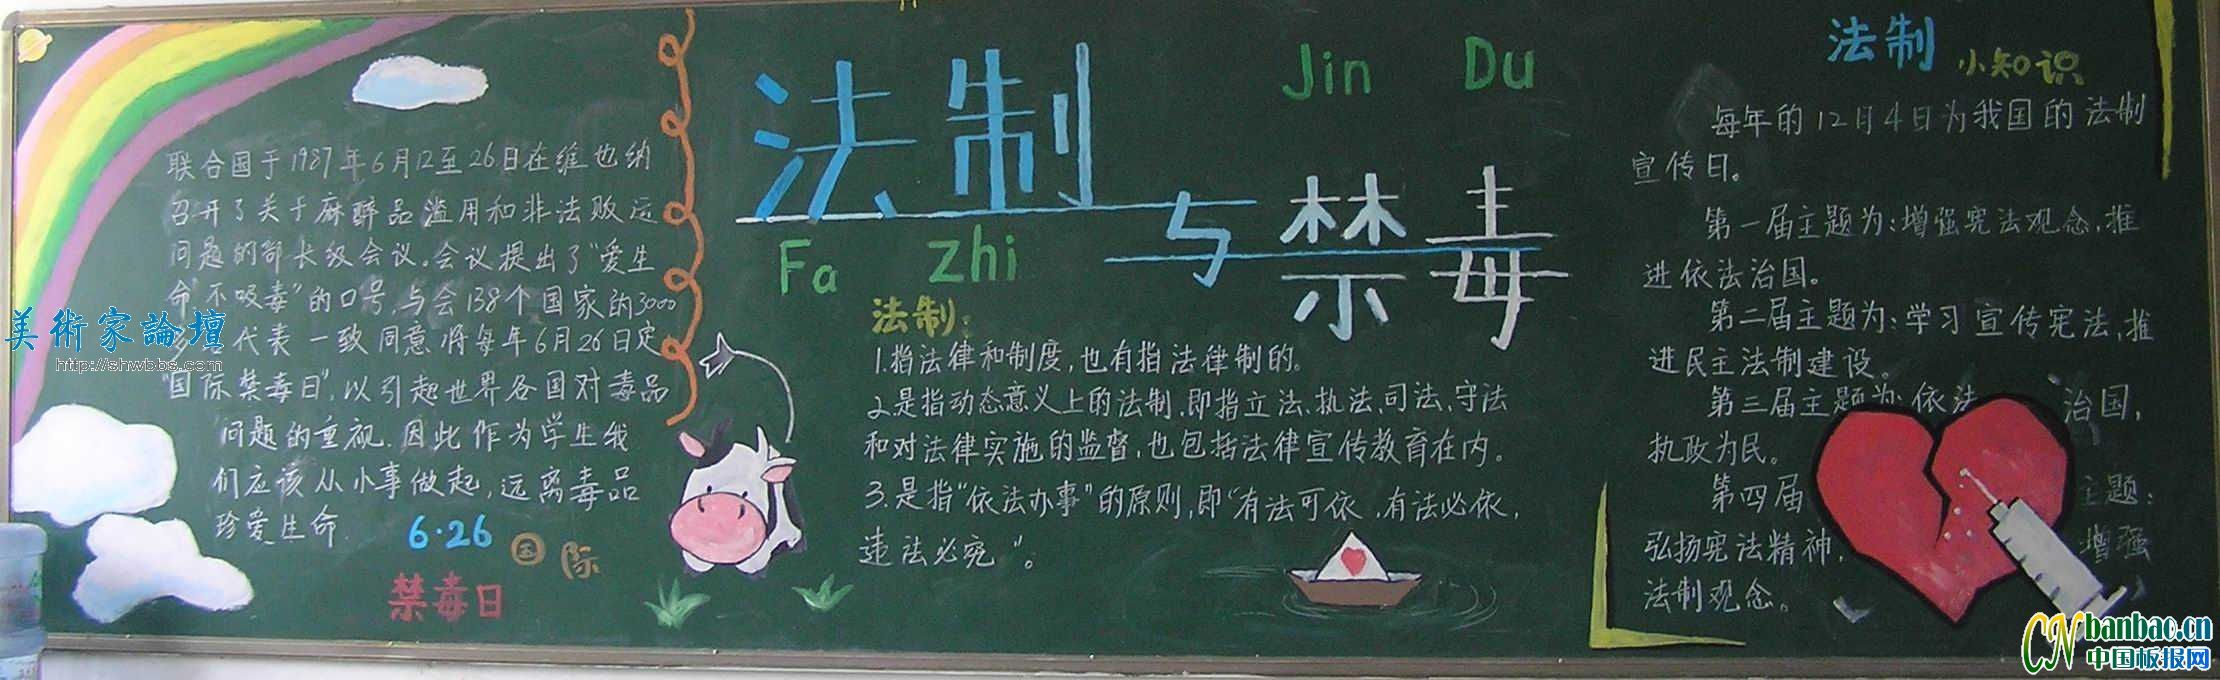 联合国于1987年6月12至26日在维也纳
召开了关于麻醉品滥用和非法贩运
问题的部长级会议。会议提出了“爱生
命,不吸毒”的口号,与会138个国家的3000
代表一致同意将每年6月26日定
“国际禁毒日”,以引起世界各国对毒品
问题的重视.因此作为学生我
们应该从小事做起,远离毒品
珍爱生命.
6·26 国际
禁毒日
美術家論壇
http://shwbbs.com
法制
Fa zhi
与
Jin Du
禁毒
法制:
1.指法律和制度,也有指法律制的。
2.是指动态意义上的法制.即指立法、执法、司法、守法
和对法律实施的监督,也包括法律宣传教育在内。
3.是指“依法办事”的原则,即“有法可依,有法必依,
违法必究”。
法制 小知识
每年的12月4日为我国的法制
宣传日。
第一届主题为:增强宪法观念,推
进依法治国。
第二届主题为:学习宣传宪法,推
进民主法制建设。
第三届主题为:依法治国,
执政为民。
第四届主题:
弘扬宪法精神,增强
法制观念。
CN banbao.cn
中国板报网